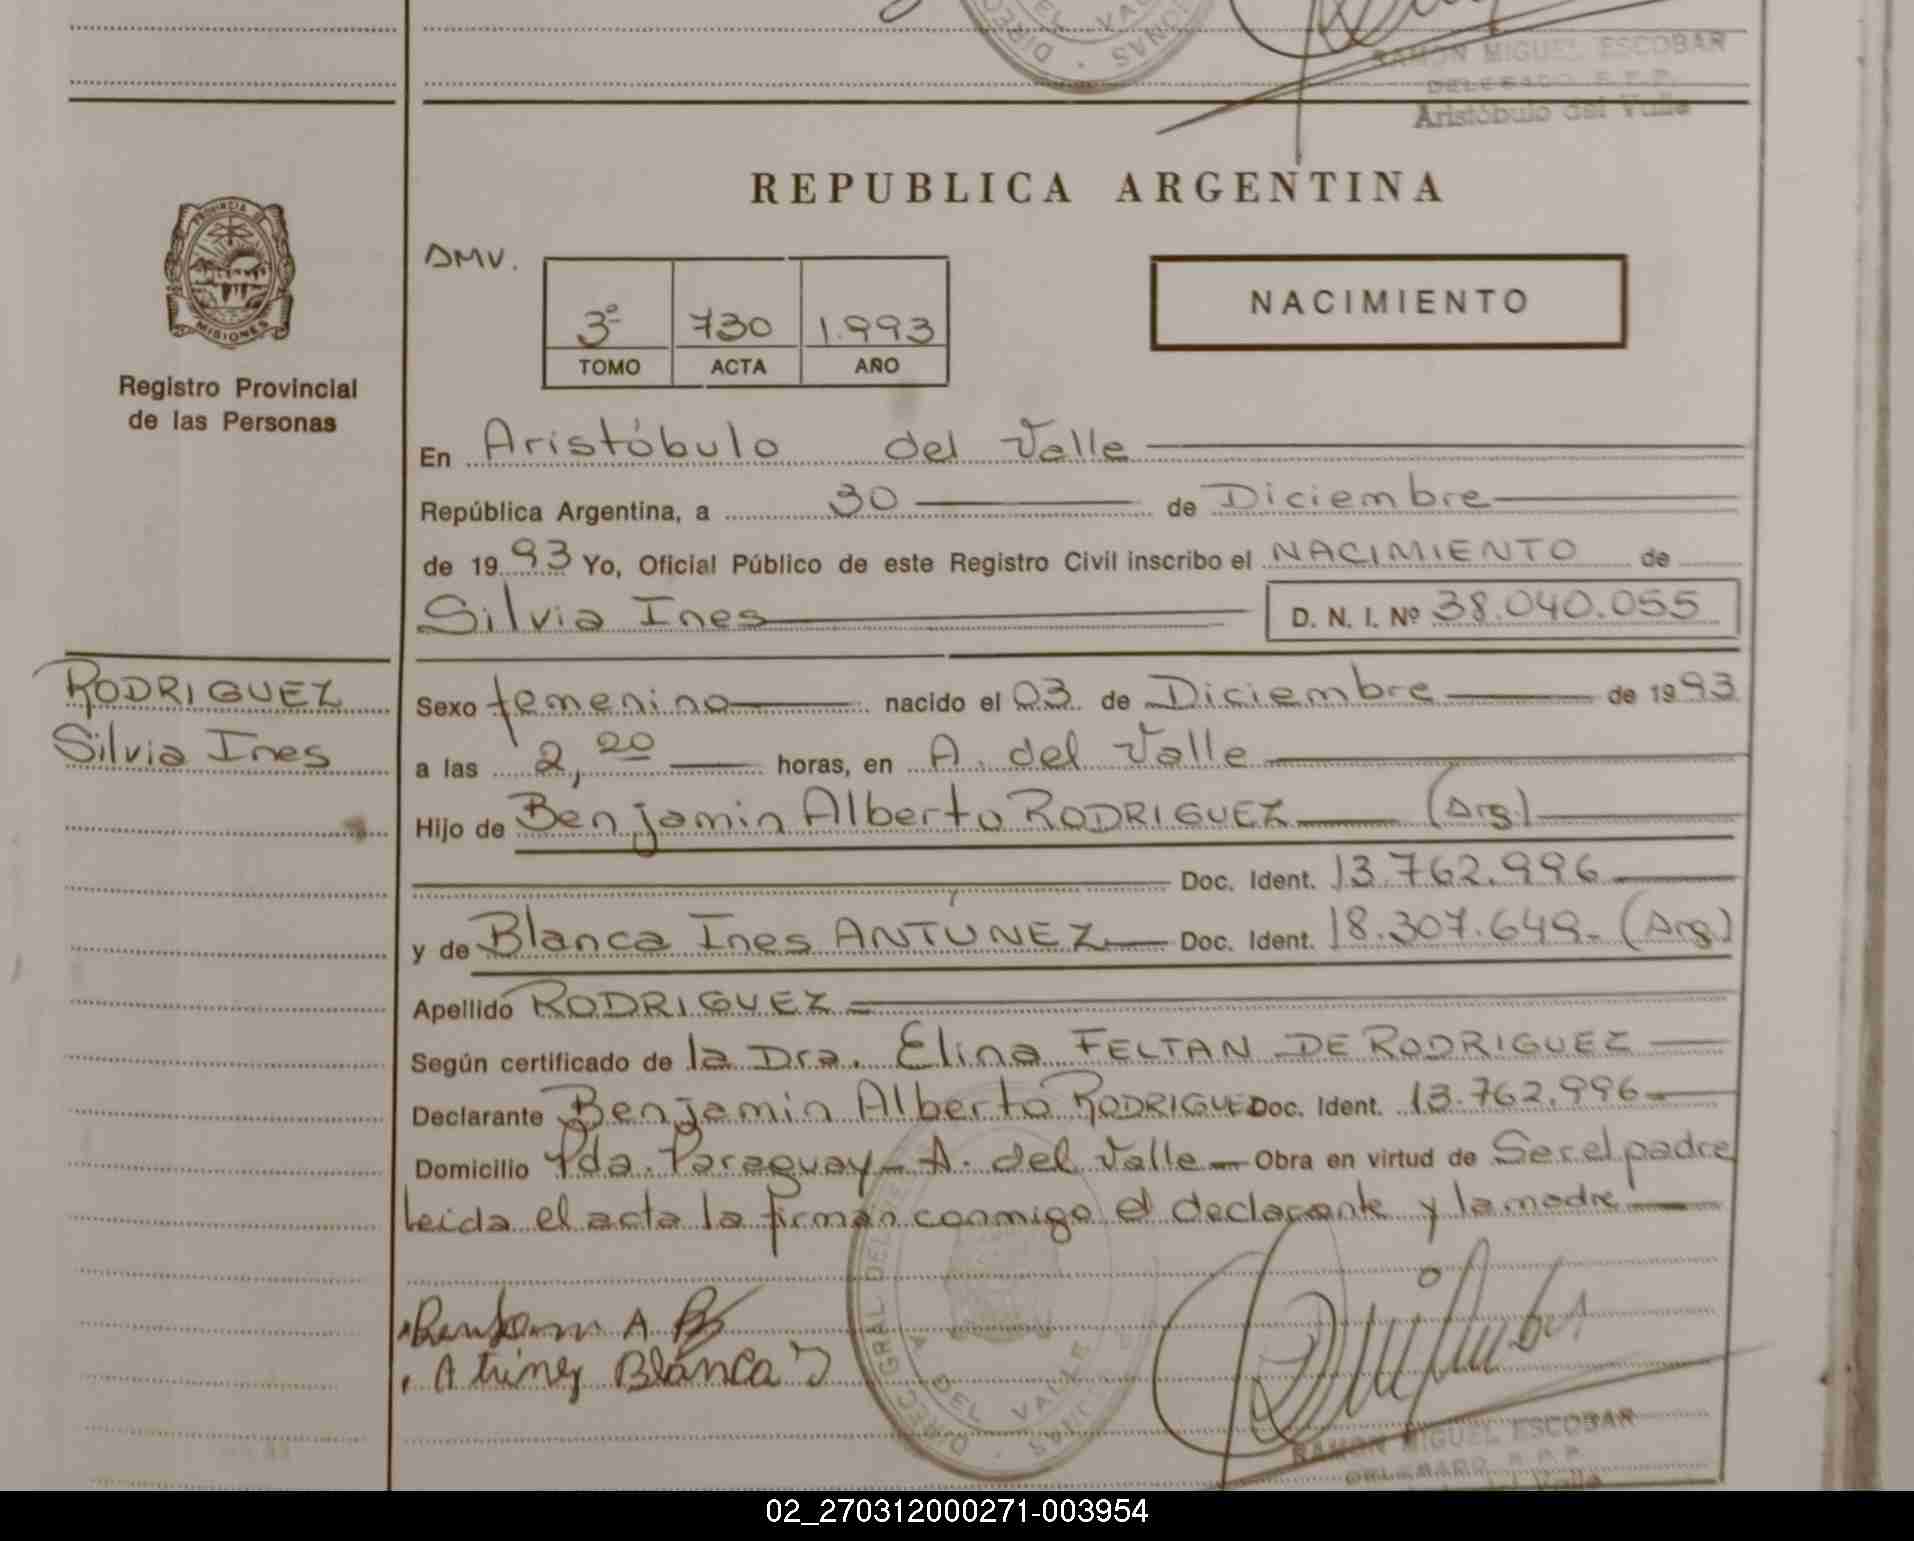 RAMON MIGUEL ESCOBAR
DELEGADO R.P.P.
Aristóbulo del Valle
REPUBLICA ARGENTINA
PROVINCIA DE
MISIONES
Registro Provincial
de las Personas
DMV.
3º 730 1.993
TOMO ACTA AÑO
NACIMIENTO
En Aristóbulo del Valle
República Argentina, a 30 de Diciembre
de 1993 Yo, Oficial Público de este Registro Civil inscribo el NACIMIENTO de
Silvia Ines D. N. I. Nº 38.040.055
RODRIGUEZ
Silvia Ines
Sexo femenino nacido el 03 de Diciembre de 1993
a las 2,20 horas, en A. del Valle
Hijo de Benjamin Alberto RODRIGUEZ (Arg)
Doc. Ident. 13.762.996
y de Blanca Ines ANTUNEZ Doc. Ident. 18.307.649. (Arg)
Apellido RODRIGUEZ
Según certificado de la Dra. Elina FELTAN DE RODRIGUEZ
Declarante Benjamin Alberto RODRIGUE Doc. Ident. 13.762.996
Domicilio Pda. Paraguay - A. del Valle Obra en virtud de Ser el padre
Leida el acta la firman conmigo el declarante y la madre
A
Blanca
DEL VALLE
RAMON MIGUEL ESCOBAR
02_270312000271-003954